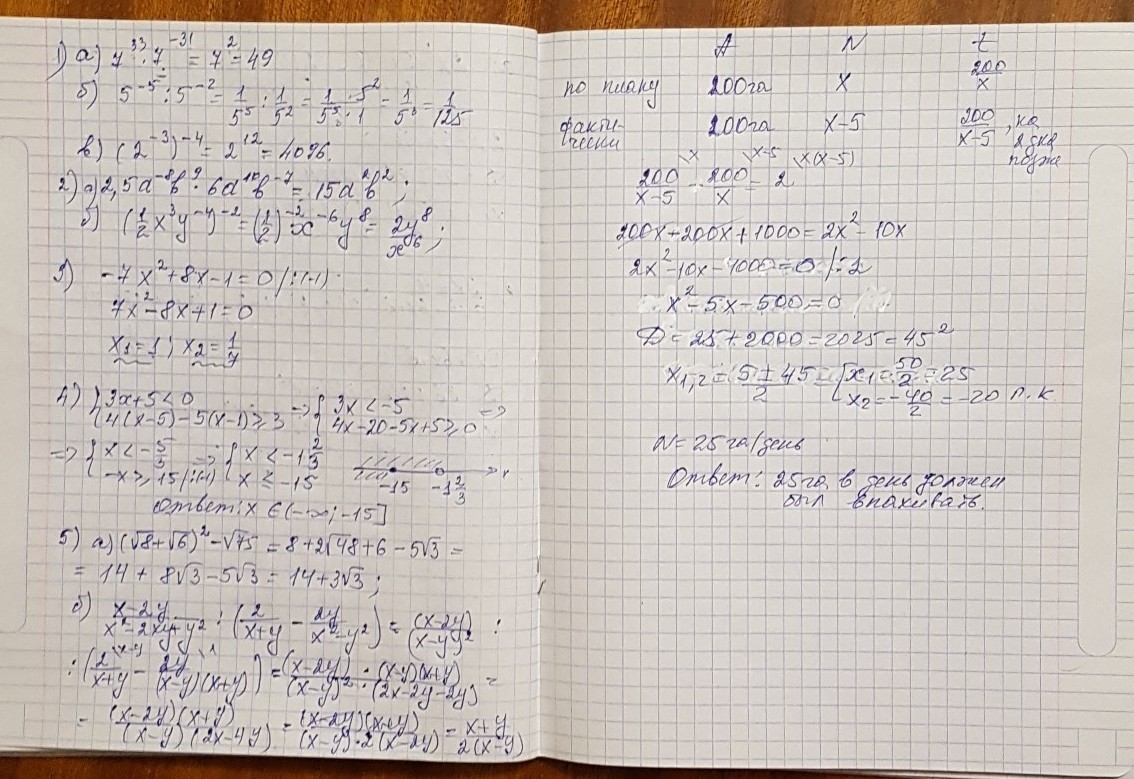 1) а) 7³³ · 7⁻³¹ = 7² = 49
б) 5⁻⁵ : 5⁻² = 1/5⁵ : 1/5² = 1/5⁵ · 5²/1 = 1/5³ = 1/125
в) (2⁻³)⁻⁴ = 2¹² = 4096.
2) а) 2,5a⁻⁸b⁹ · 6a¹⁰b⁻⁷ = 15a²b²;
б) (1/2 x³y⁻⁴)⁻² = (1/2)⁻² x⁻⁶y⁸ = 2y⁸/x⁶;
3) -7x² + 8x - 1 = 0 /:(-1)
7x² - 8x + 1 = 0
x₁ = 1; x₂ = 1/7
4) { 3x + 5 < 0 => { 3x < -5 =>
4(x-5) - 5(x-1) ≥ 3 4x - 20 - 5x + 5 ≥ 0
=> { x < -5/3 => { x < -1 2/3
-x ≥ 15 /:(-1) x ≤ -15 -15 -1 2/3 x
Ответ: x ∈ (-∞; -15]
5) а) (√8 + √6)² - √75 = 8 + 2√48 + 6 - 5√3 =
= 14 + 8√3 - 5√3 = 14 + 3√3;
б) (x-2y)/(x²-2xy+y²) : (2/(x+y) - 2y/(x²-y²)) = (x-2y)/(x-y)² :
: (2/(x+y) \x-y - 2y/((x-y)(x+y)) \1) = (x-2y)·(x-y)(x+y)/((x-y)²·(2x-2y-2y)) =
= (x-2y)(x+y)/((x-y)(2x-4y)) = (x-2y)(x+y)/((x-y)·2(x-2y)) = (x+y)/(2(x-y))
A N t
по плану 200га x 200/x
факти-чески 200га x-5 200/(x-5), на 2 дня позже
200/(x-5) \x - 200/x \x-5 = 2 \x(x-5)
200x + 200x + 1000 = 2x² - 10x
2x² - 10x - 1000 = 0 /:2
x² - 5x - 500 = 0
D = 25 + 2000 = 2025 = 45²
x₁,₂ = (5 ± 45)/2 = [ x₁ = 50/2 = 25
x₂ = -40/2 = -20 п.к.
N = 25 га/день
Ответ: 25га в день должен
был впахивать.